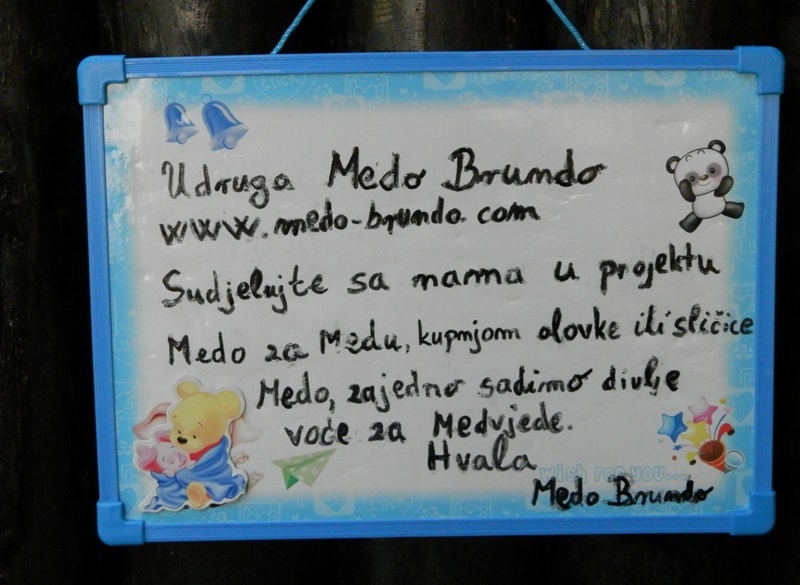 Udruga Medo Brundo
www.medo-brundo.com
Sudjelujte sa nama u projektu
Medo za Medu, kupnjom olovke ili sličice
Medo, zajedno sadimo divlje
voće za Medvjede.
Hvala
wish for you...
Medo Brundo